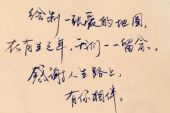 绘制一张爱的地图,
在有生之年,我们一一留念。
感谢人生路上,
有你相伴。